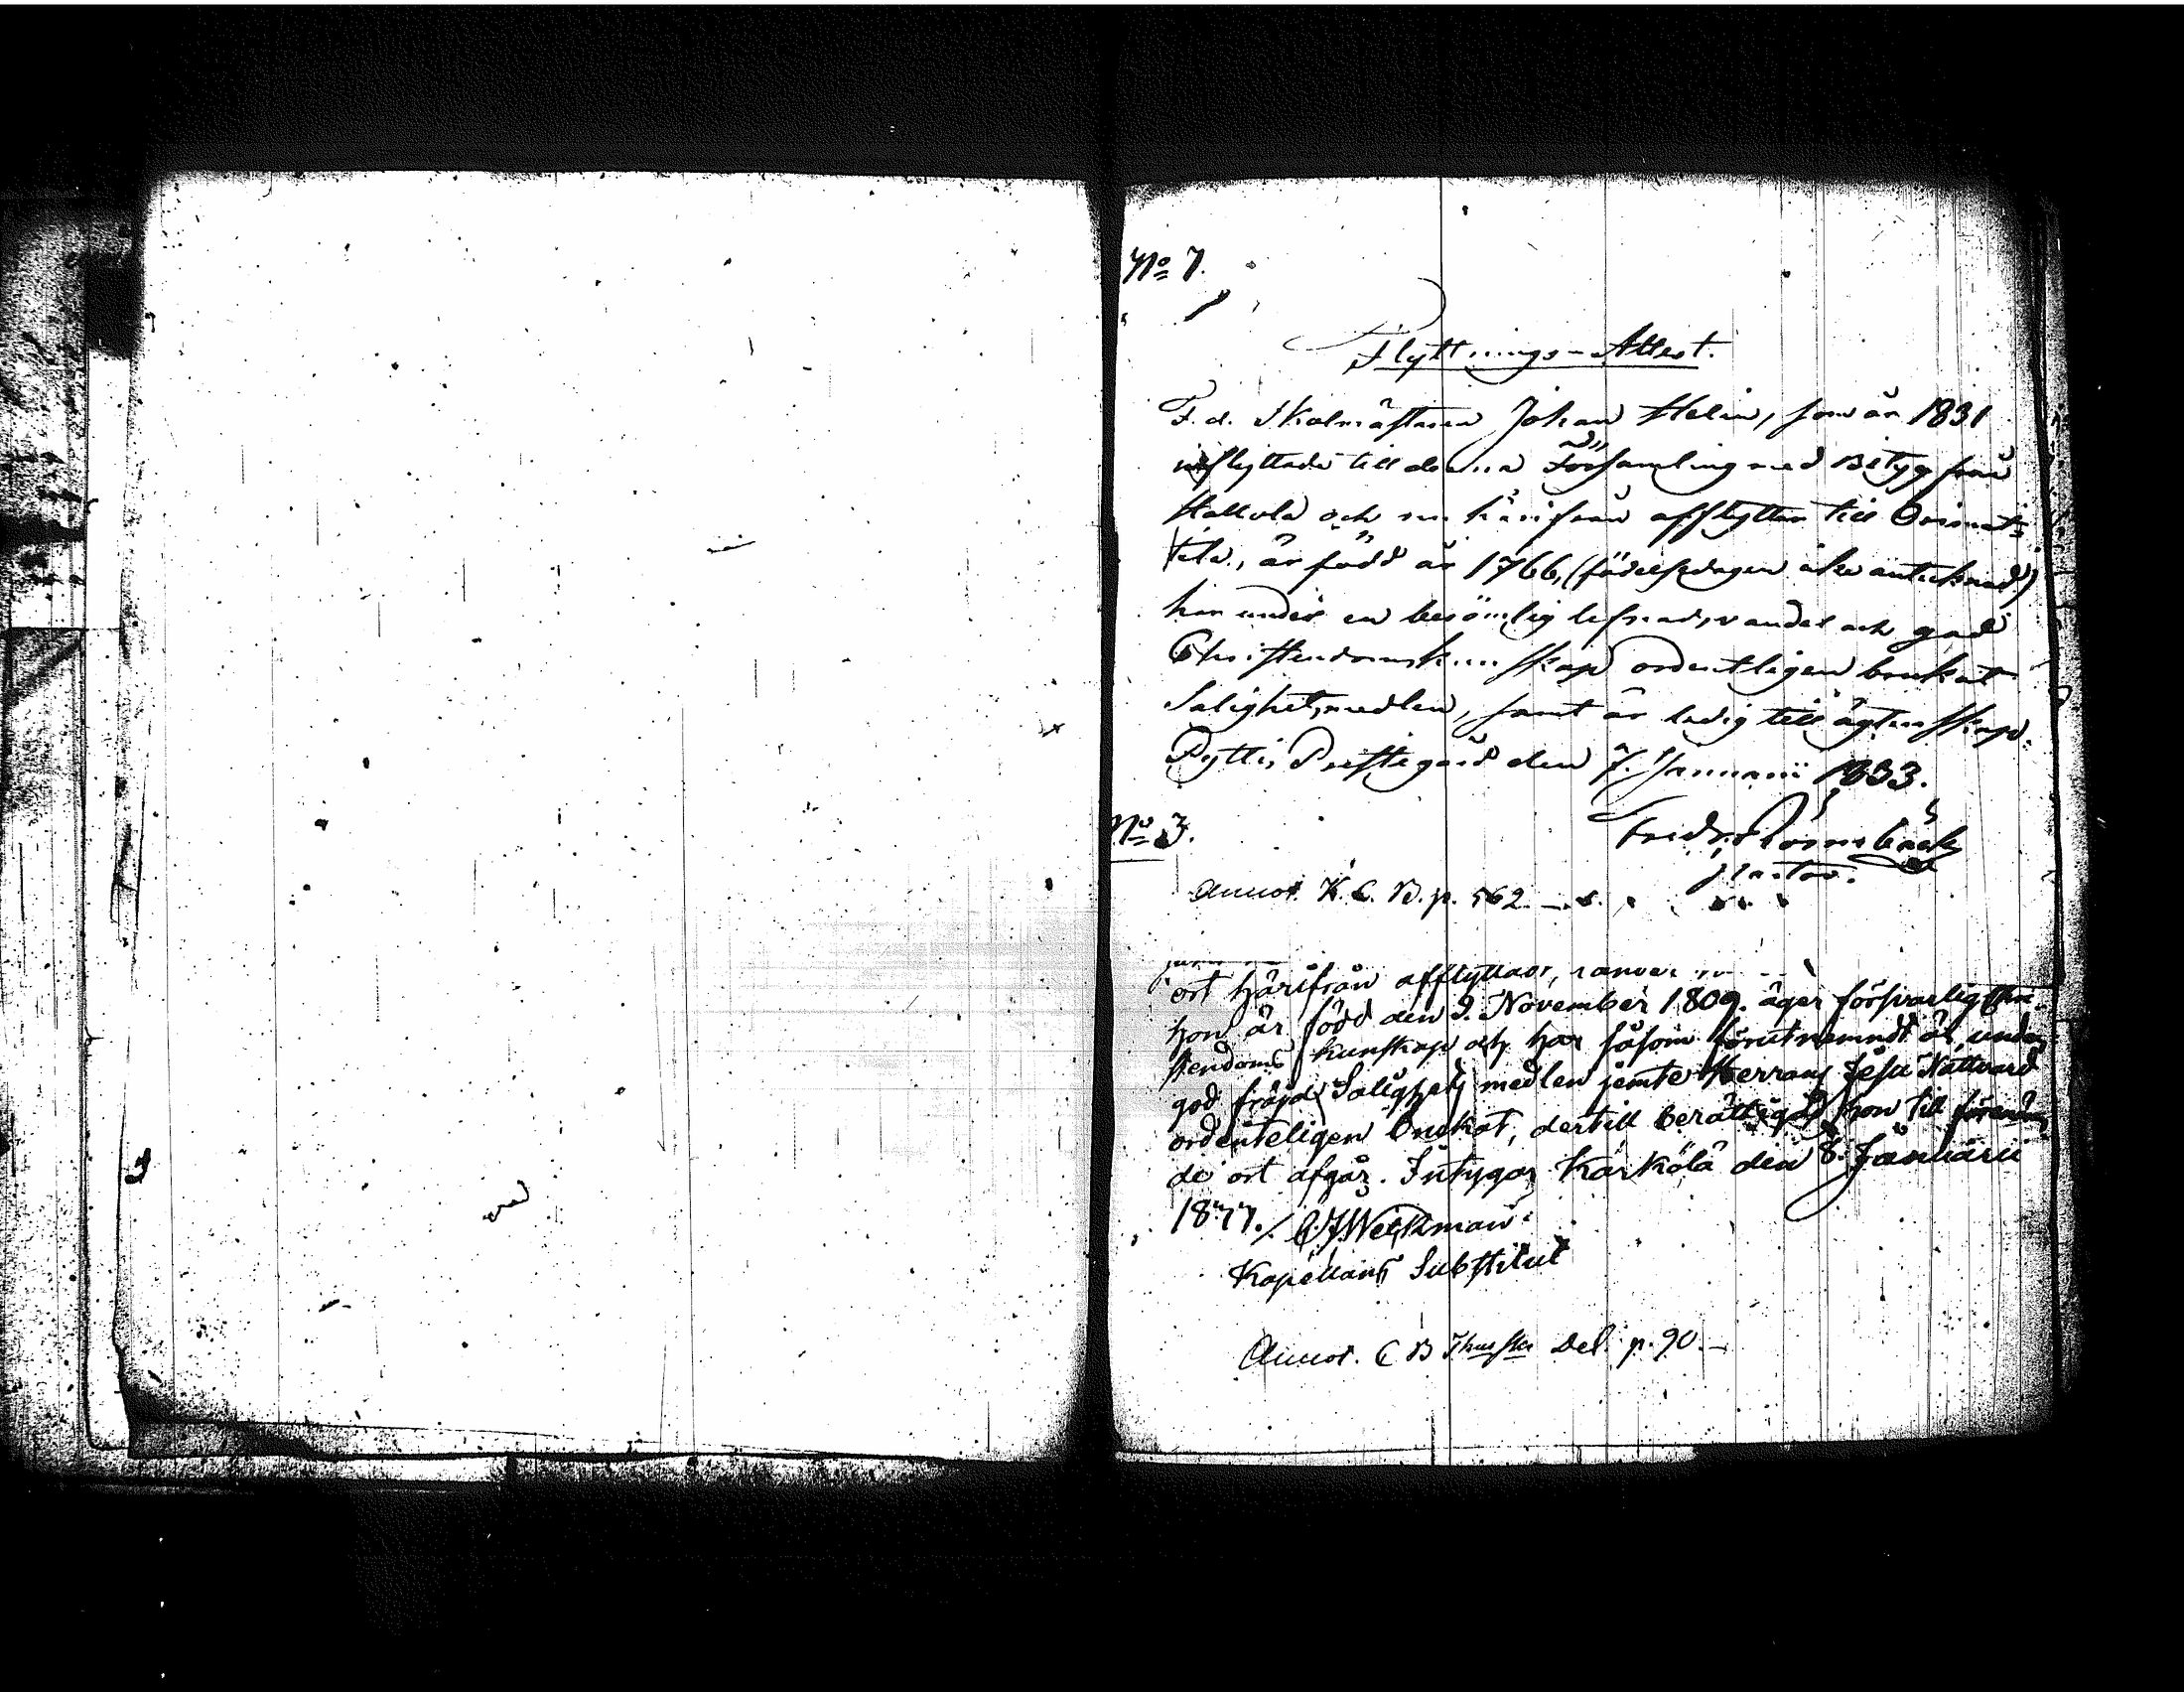 No 7.
Flyttnings-Attest.
F. d. Skolmästaren Johan Helin, som år 1831
inflyttade till denna Församling med Betyg från
Hallola och nu härifrån afflyttar till Orimat-
tila, är född år 1766, (födelsedagen icke antecknad)
har under en berömlig lefnadsvandel och god
Christendomskunskap ordentligen brukat
Salighetsmedlen, samt är ledig till ägtenskap.
Pyttis Prestegård den 7. Januarii 1833.
No 3.
Fredr.
Pastor.
Annot. K. C. B. p. 562.
ort härifrån afflyttar,
hon är född den 9. November 1809. äger förswarlig Chri-
stendoms kunskap och har såsom förutnemndt är, under
god fräjd Salighets medlen jemte Herrans Jesu Nattvard
ordenteligen brukat, dertill berättigad hon till förenäm-
de ort afgår. Intygar Kärkölä den 8. Januarii
Weckman
Kapellans Substitut
Annot. C B Del. p. 90.